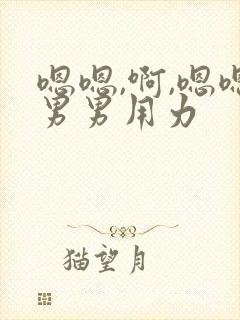 嗯嗯,啊,嗯嗯
男男用力
猫望月